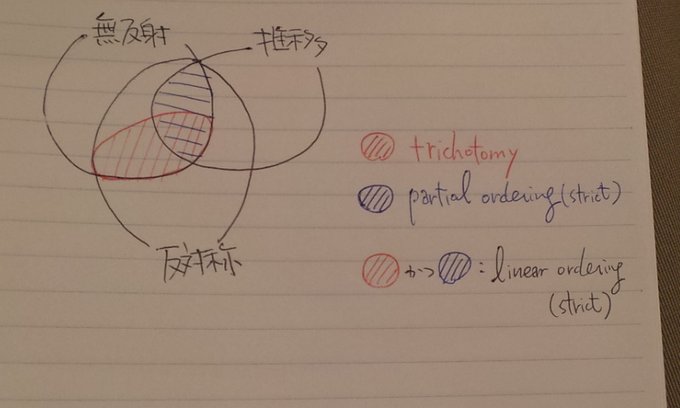 無反射
推移
反対称
trichotomy
partial ordering (strict)
かつ : linear ordering
(strict)